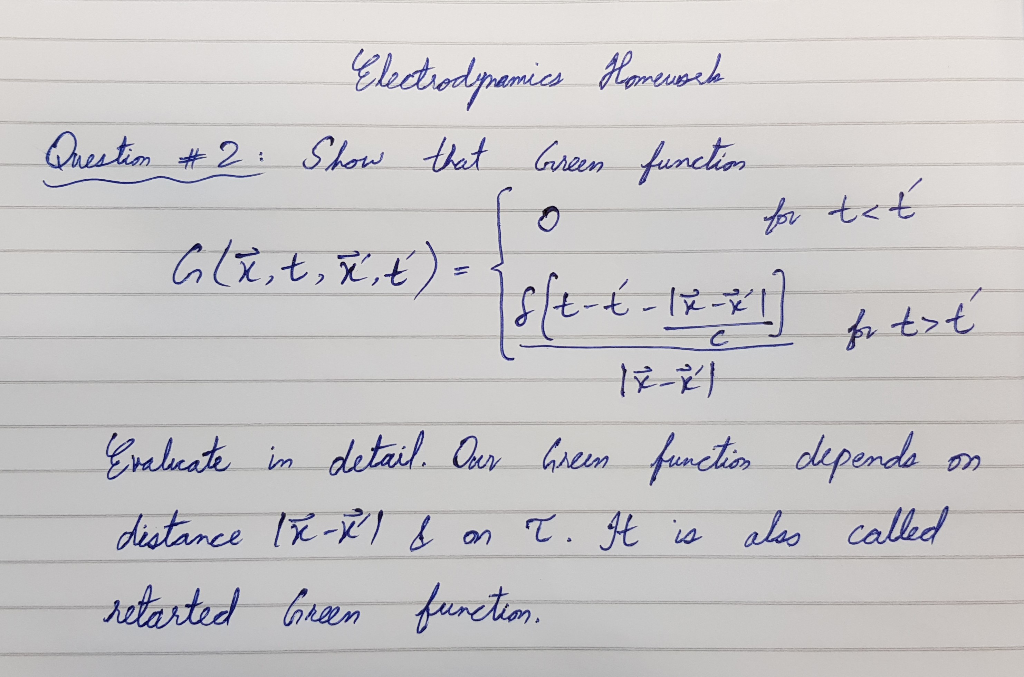 Electrodynamics Homework
Question # 2 : Show that Green function
G(x⃗, t, x⃗′, t′) = { 0 for t < t′
δ[t - t′ - |x⃗ - x⃗′| / c] / |x⃗ - x⃗′| for t > t′
Evaluate in detail. Our Green function depends on
distance |x⃗ - x⃗′| & on τ. It is also called
retarted Green function.